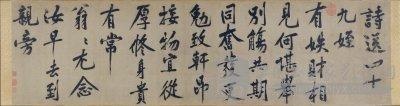 詩送四十
九姪
有姪財相
見何堪舉
別觴共期
同奮發更
勉致軒昂
接物宜從
厚修身貴
有常
翁〻尤念
汝早去到
親旁